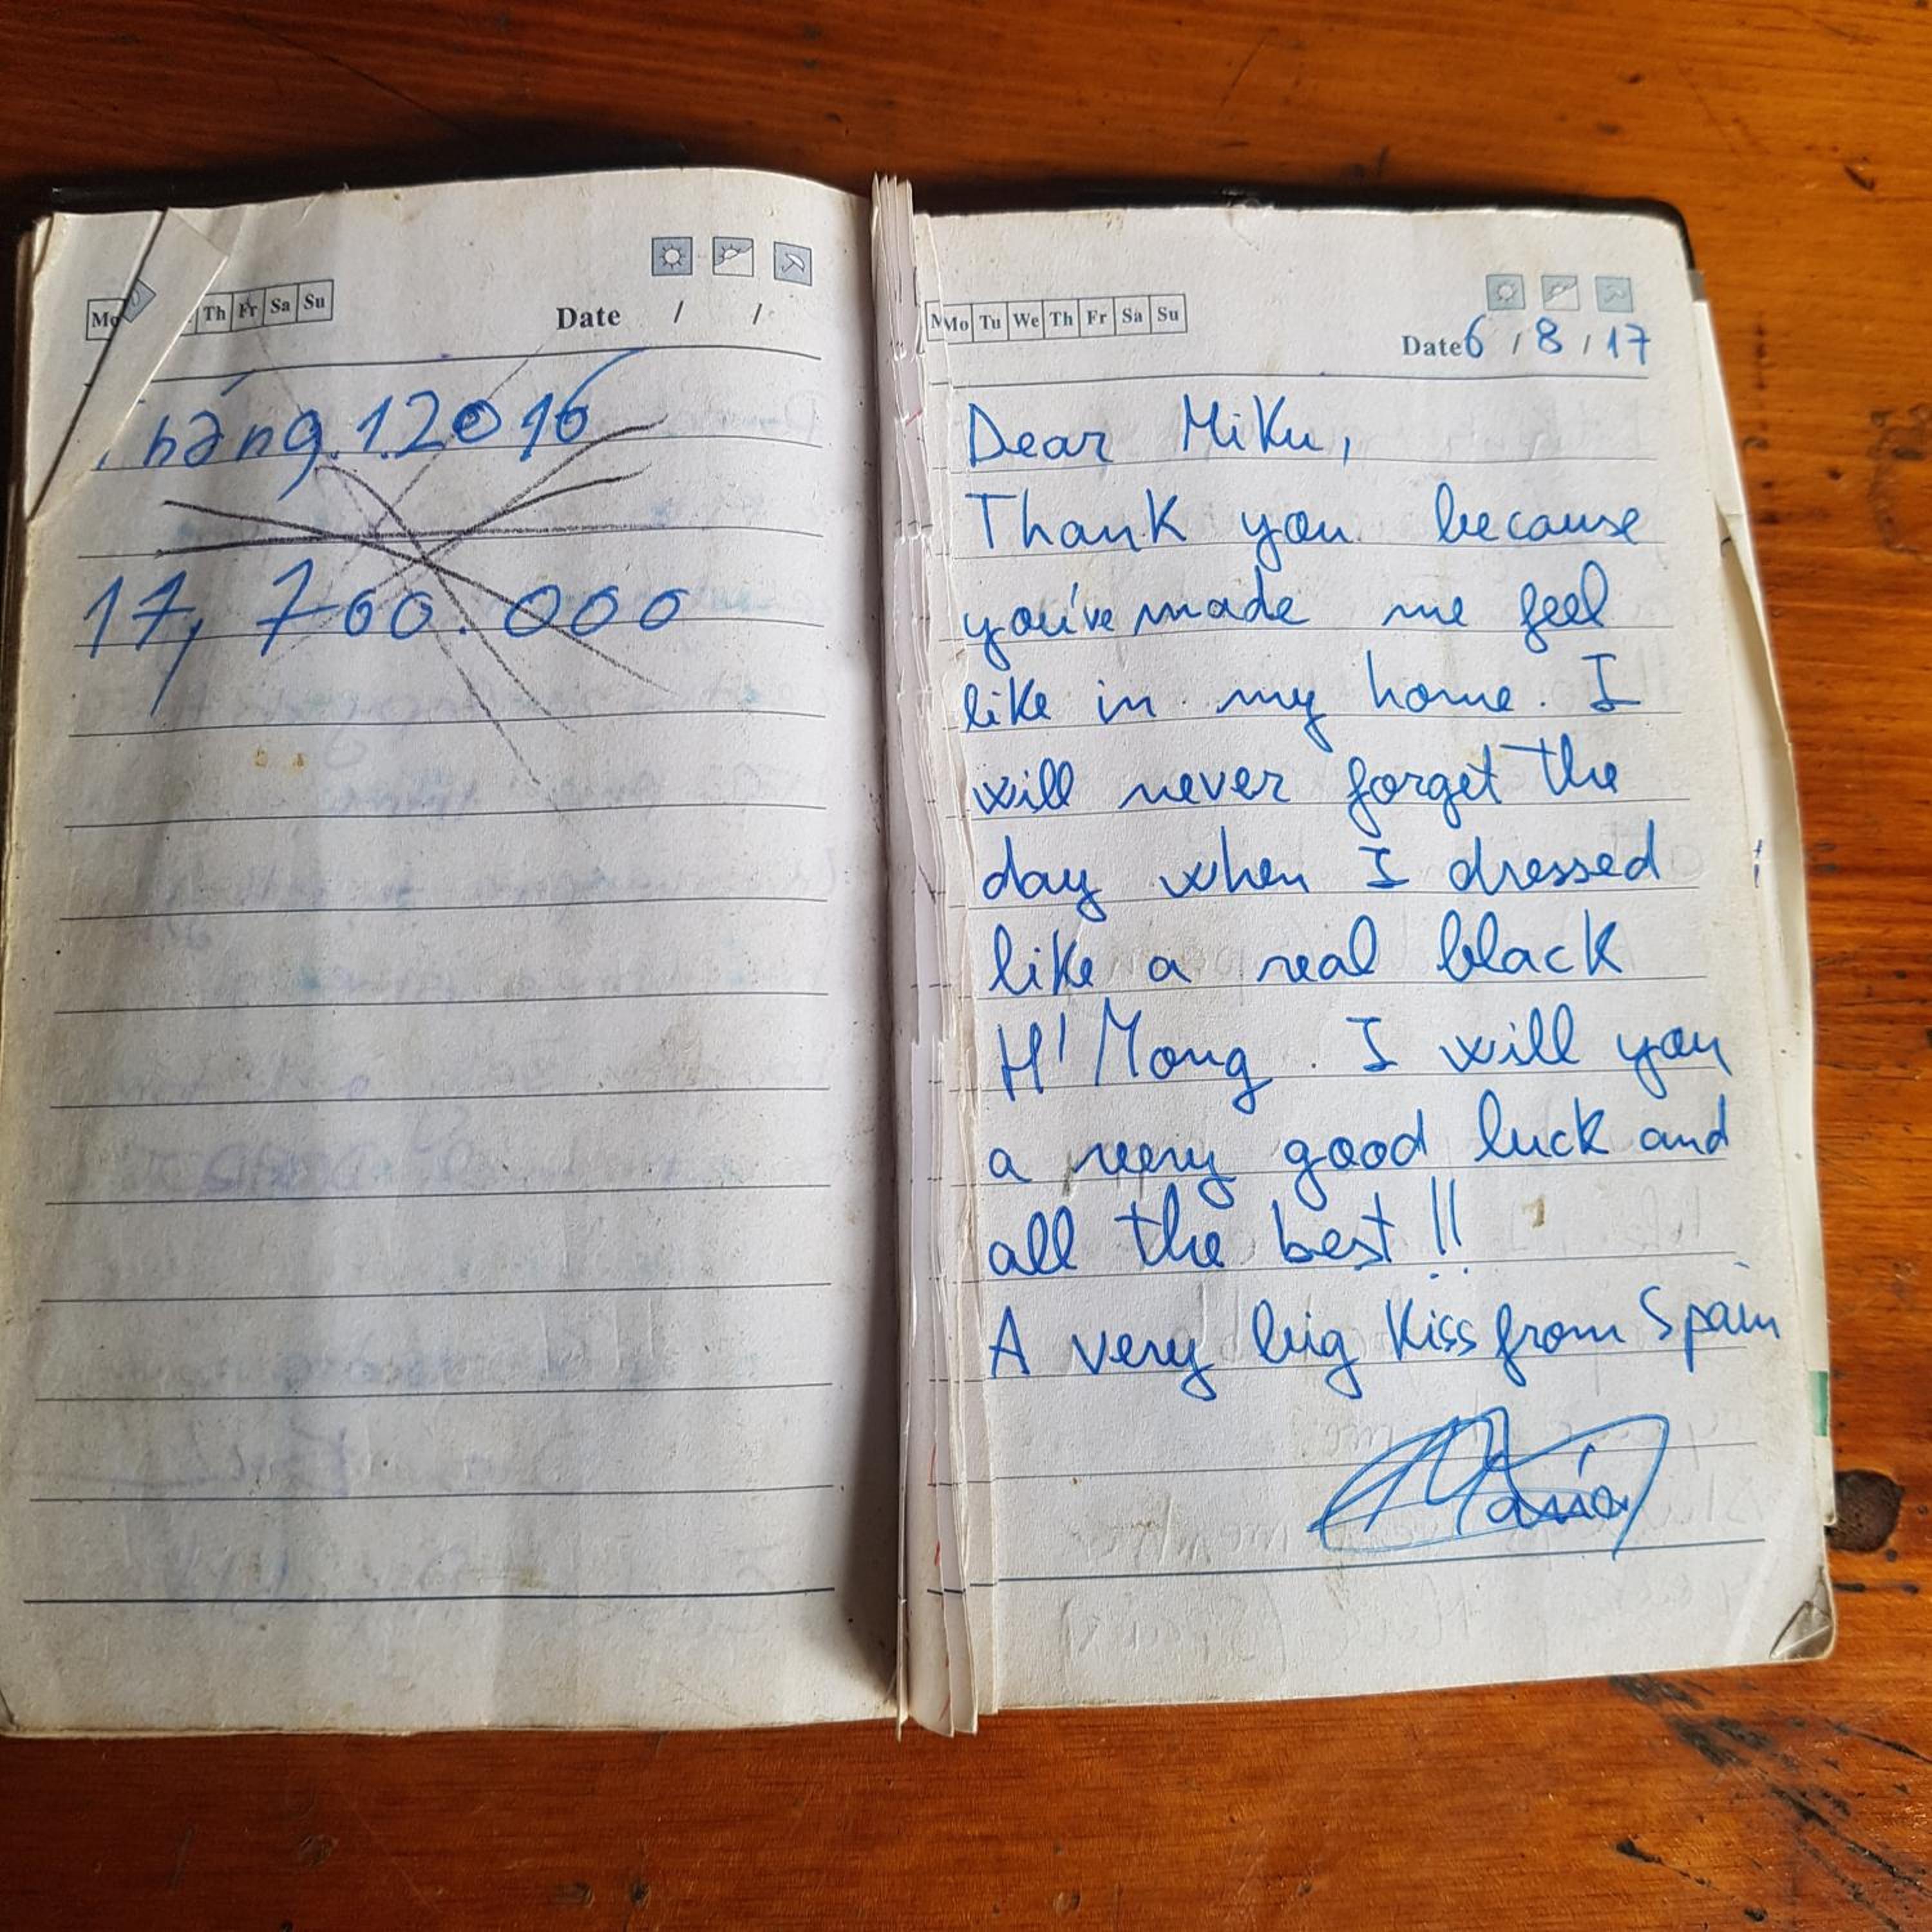 Mo Th Fr Sa Su
Date / /
háng.12016
17,700.000
Mo Tu We Th Fr Sa Su
Date 6 / 8 / 17
Dear MiKu,
Thank you because
you've made me feel
like in my home. I
will never forget the
day when I dressed
like a real black
H'Mong. I will you
a very good luck and
all the best!!
A very big Kiss from Spain
María